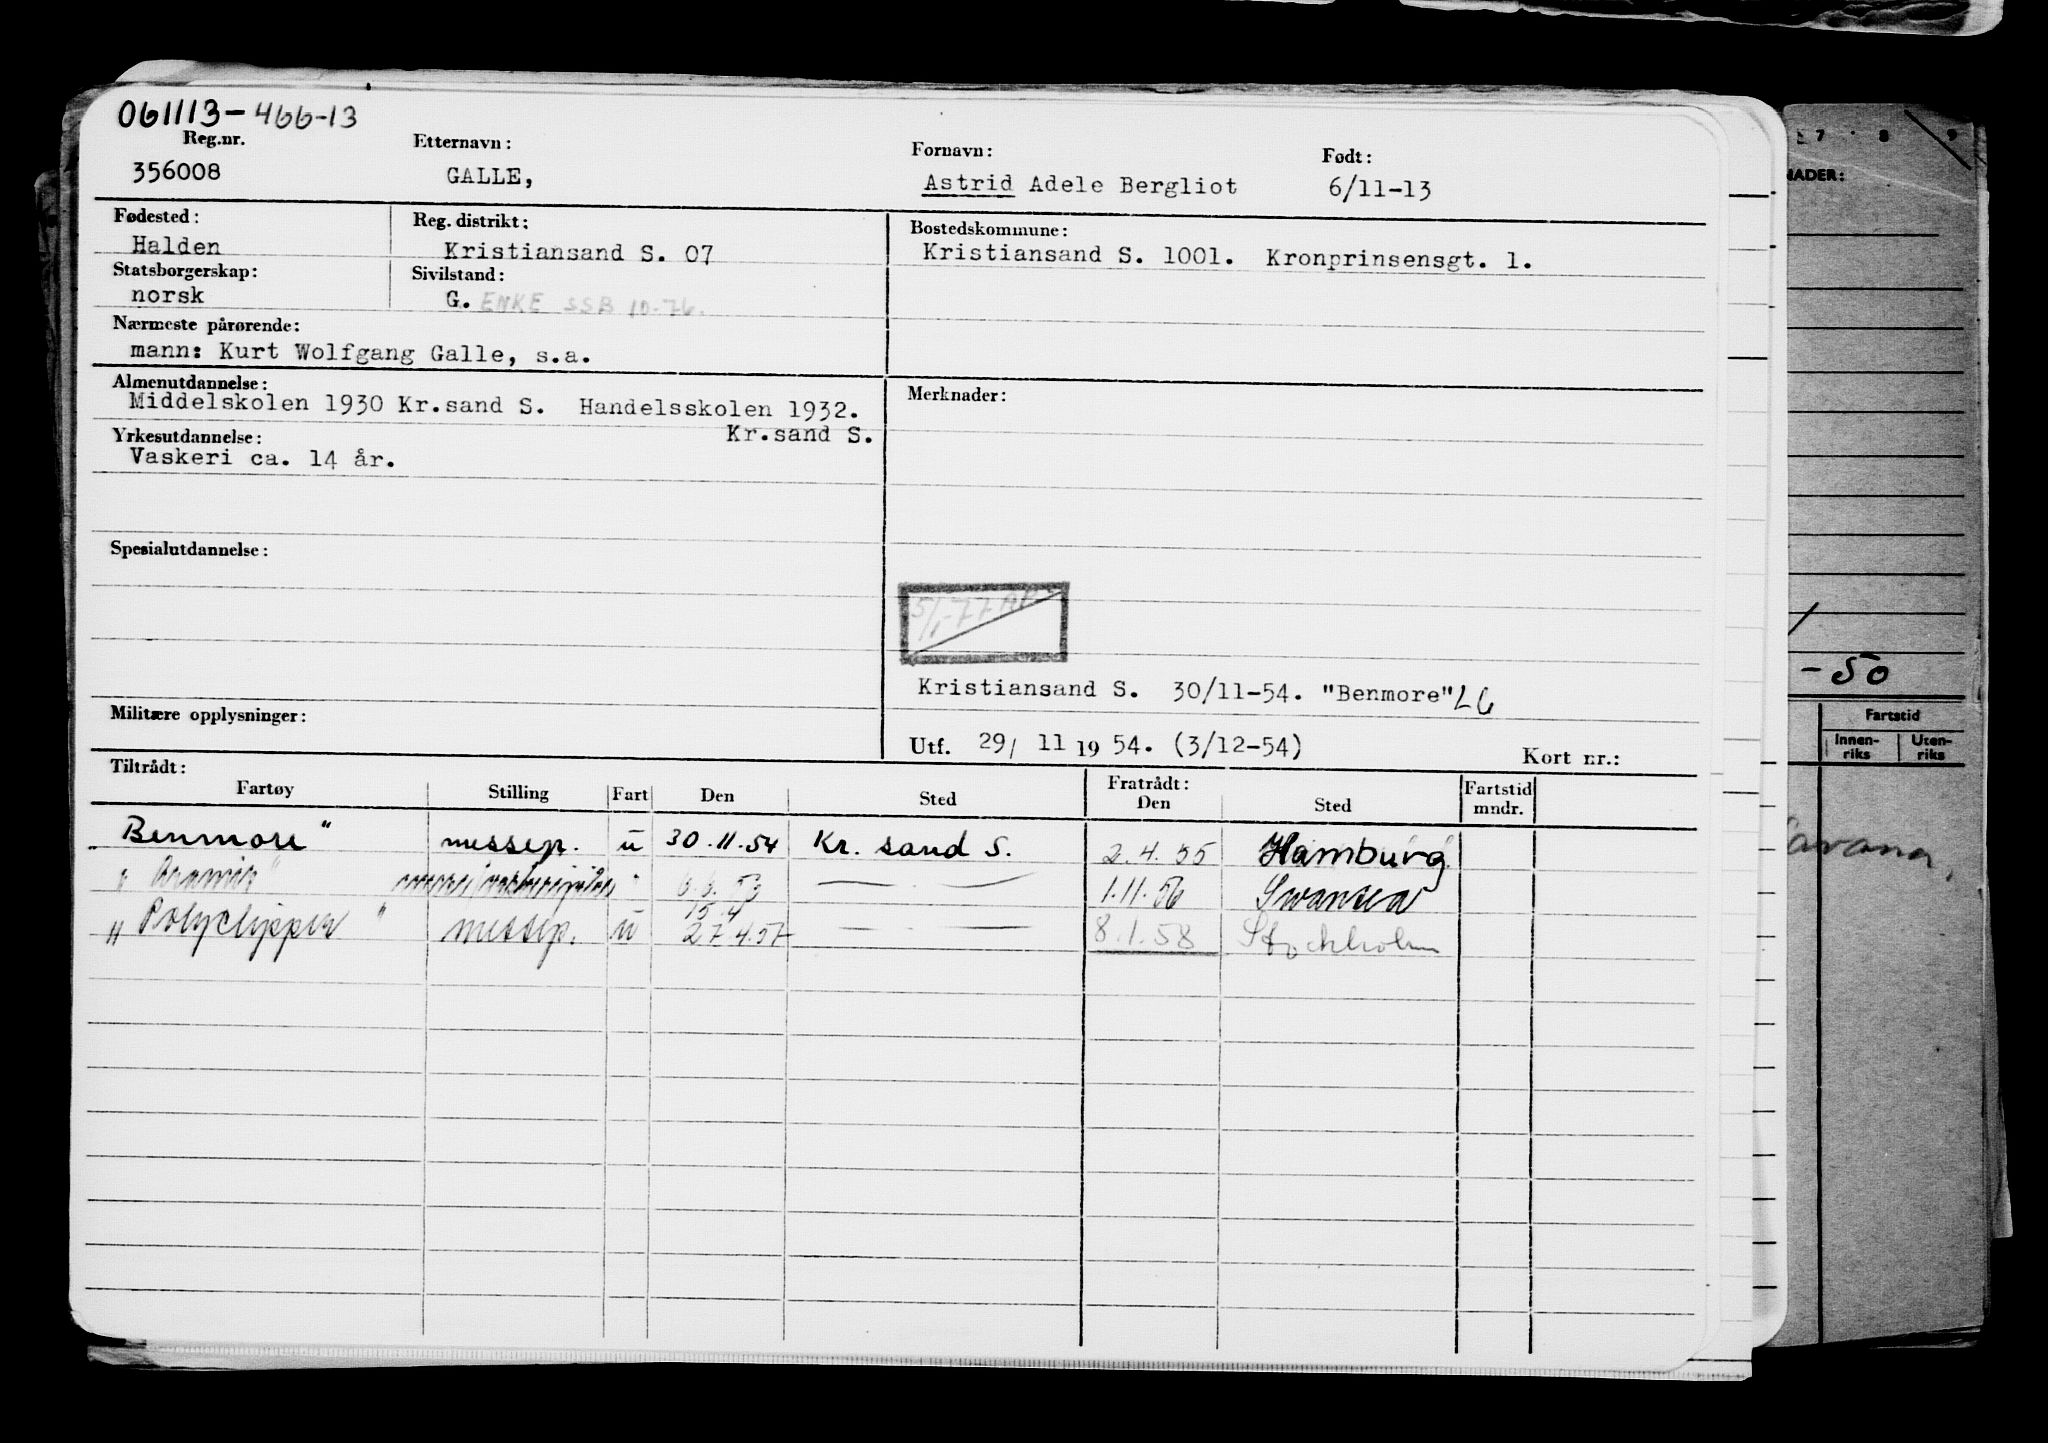 061113-466-13
Reg.nr. Etternavn: Fornavn: Født:
356008 GALLE, Astrid Adele Bergliot 6/11-13
Fødested: Reg. distrikt: Bostedskommune:
Halden Kristiansand S. 07 Kristiansand S. 1001. Kronprinsensgt. 1.
Statsborgerskap: Sivilstand:
norsk G. ENKE SSB 10-76.
Nærmeste pårørende:
mann: Kurt Wolfgang Galle, s.a.
Almenutdannelse: Merknader:
Middelskolen 1930 Kr.sand S. Handelsskolen 1932.
Kr.sand S.
Yrkesutdannelse:
Vaskeri ca. 14 år.
Spesialutdannelse:
5/1-77
Kristiansand S. 30/11-54. "Benmore" LG
Militære opplysninger:
Utf. 29/ 11 1954. (3/12-54) Kort nr.:
Tiltrådt: Fratrådt:
Fartøy Stilling Fart Den Sted Den Sted Fartstid mndr.
"Benmore" messep. u 30.11.54 Kr. sand S. 2.4.55 Hamburg
" " 1.11.56 Swansea
15.4
"Polyclipper" messep. u 27.4.57 — · — 8.1.58 Stockholm
7 8 9
NADER:
-50
Fartstid
Innen-riks Uten-riks